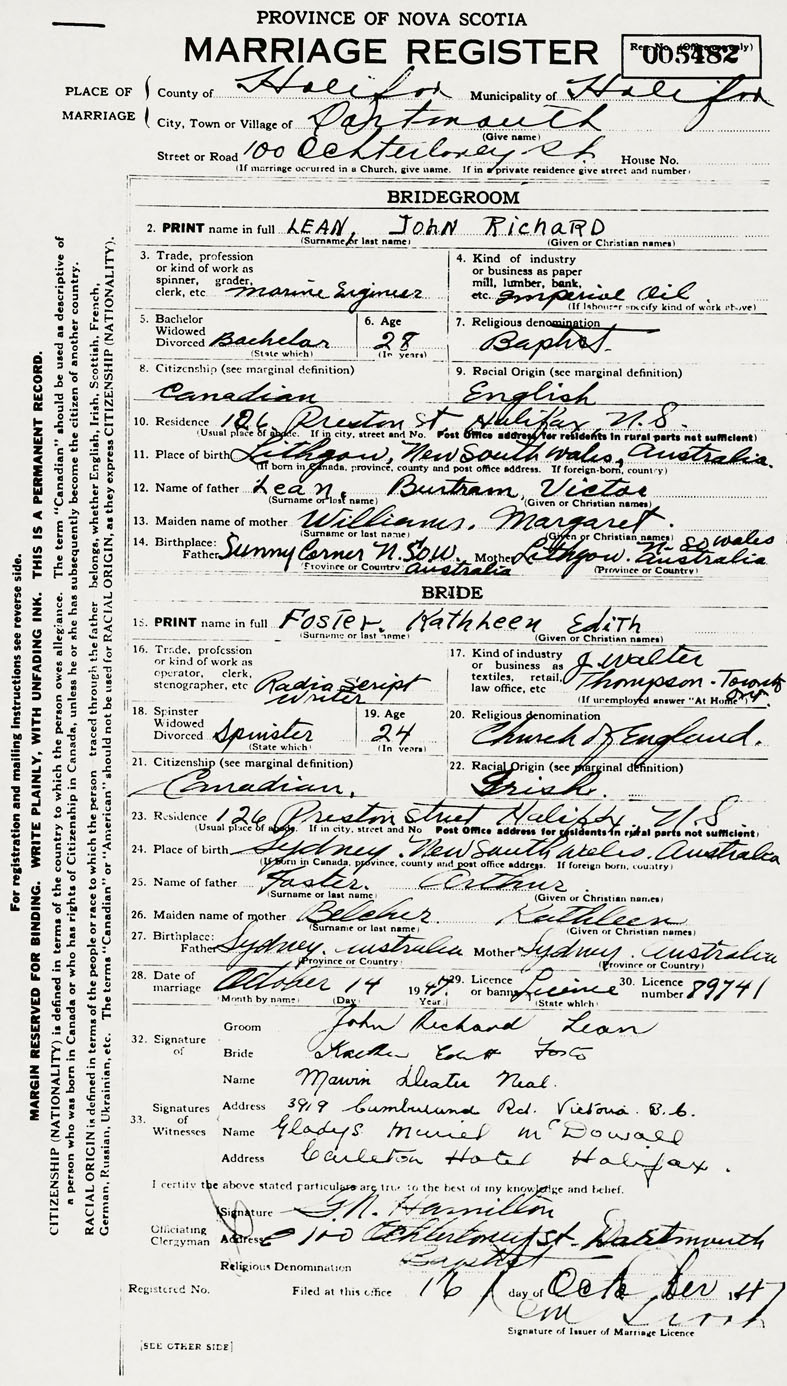 PROVINCE OF NOVA SCOTIA
MARRIAGE REGISTER
Reg. No. (Office use only)
005482
PLACE OF MARRIAGE
County of Halifax Municipality of Halifax
City, Town or Village of Dartmouth
(Give name)
Street or Road 100 Ochterloney St. House No.
(If marriage occurred in a Church, give name. If in a private residence give street and number)
BRIDEGROOM
2. PRINT name in full LEAN, John RichARD
(Surname or last name) (Given or Christian names)
3. Trade, profession or kind of work as spinner, grader, clerk, etc Marine Engineer
4. Kind of industry or business as paper mill, lumber, bank, etc. Imperial Oil
(If labourer specify kind of work above)
5. Bachelor Widowed Divorced Bachelor
(State which)
6. Age 28
(In years)
7. Religious denomination Baptist.
8. Citizenship (see marginal definition) Canadian
9. Racial Origin (see marginal definition) English
10. Residence 126 Preston St Halifax, N.S.
(Usual place of abode. If in city, street and No. Post Office address for residents in rural parts not sufficient)
11. Place of birth Lithgow, New South Wales, Australia.
(If born in Canada, province, county and post office address. If foreign-born, country)
12. Name of father Lean, Bertram, Victor
(Surname or last name) (Given or Christian names)
13. Maiden name of mother Williams, Margaret.
(Surname or last name) (Given or Christian names)
14. Birthplace: Father Sunny Corner N. So. W. Australia Mother Lithgow. N. So Wales Australia
(Province or Country) (Province or Country)
BRIDE
15. PRINT name in full Foster, Kathleen Edith
(Surname or last name) (Given or Christian names)
16. Trade, profession or kind of work as operator, clerk, stenographer, etc Radio Script Writer
17. Kind of industry or business as textiles, retail, law office, etc J. Walter Thompson - Toronto
(If unemployed answer "At Home")
18. Spinster Widowed Divorced Spinster
(State which)
19. Age 24
(In years)
20. Religious denomination Church of England.
21. Citizenship (see marginal definition) Canadian.
22. Racial Origin (see marginal definition) Irish.
23. Residence 126 Preston Street Halifax, N.S.
(Usual place of abode. If in city, street and No Post Office address for residents in rural parts not sufficient)
24. Place of birth Sydney. New South Wales. Australia
(If born in Canada, province, county and post office address. If foreign born, country)
25. Name of father Foster. Arthur
(Surname or last name) (Given or Christian names)
26. Maiden name of mother Belcher Kathleen
(Surname or last name) (Given or Christian names)
27. Birthplace: Father Sydney. Australia Mother Sydney. Australia
(Province or Country) (Province or Country)
28. Date of marriage October 14 1947
(Month by name) (Day) (Year)
29. Licence or banns Licence
(State which)
30. Licence number 89741
32. Signature of
Groom John Richard Lean
Bride Edith
33. Signatures of Witnesses
Name Neal.
Address 3919 Cumberland Rd. Victoria. B.C.
Name Gladys Muriel McDowall
Address Carleton Hotel Halifax.
I certify the above stated particulars are true to the best of my knowledge and belief.
Officiating Clergyman
Signature G. N. Hamilton
Address 100 Ochterloney St - Dartmouth
Religious Denomination Baptist
Registered No. Filed at this office 16 day of October 1947
Signature of Issuer of Marriage Licence
[SEE OTHER SIDE]
For registration and mailing instructions see reverse side.
MARGIN RESERVED FOR BINDING. WRITE PLAINLY, WITH UNFADING INK. THIS IS A PERMANENT RECORD.
CITIZENSHIP (NATIONALITY) is defined in terms of the country to which the person owes allegiance. The term "Canadian" should be used as descriptive of
a person who was born in Canada or who has rights of Citizenship in Canada, unless he or she has subsequently become the citizen of another country.
RACIAL ORIGIN is defined in terms of the people or race to which the person traced through the father belongs, whether English, Irish, Scottish, French,
German, Russian, Ukrainian, etc. The terms "Canadian" or "American" should not be used for RACIAL ORIGIN, as they express CITIZENSHIP (NATIONALITY).